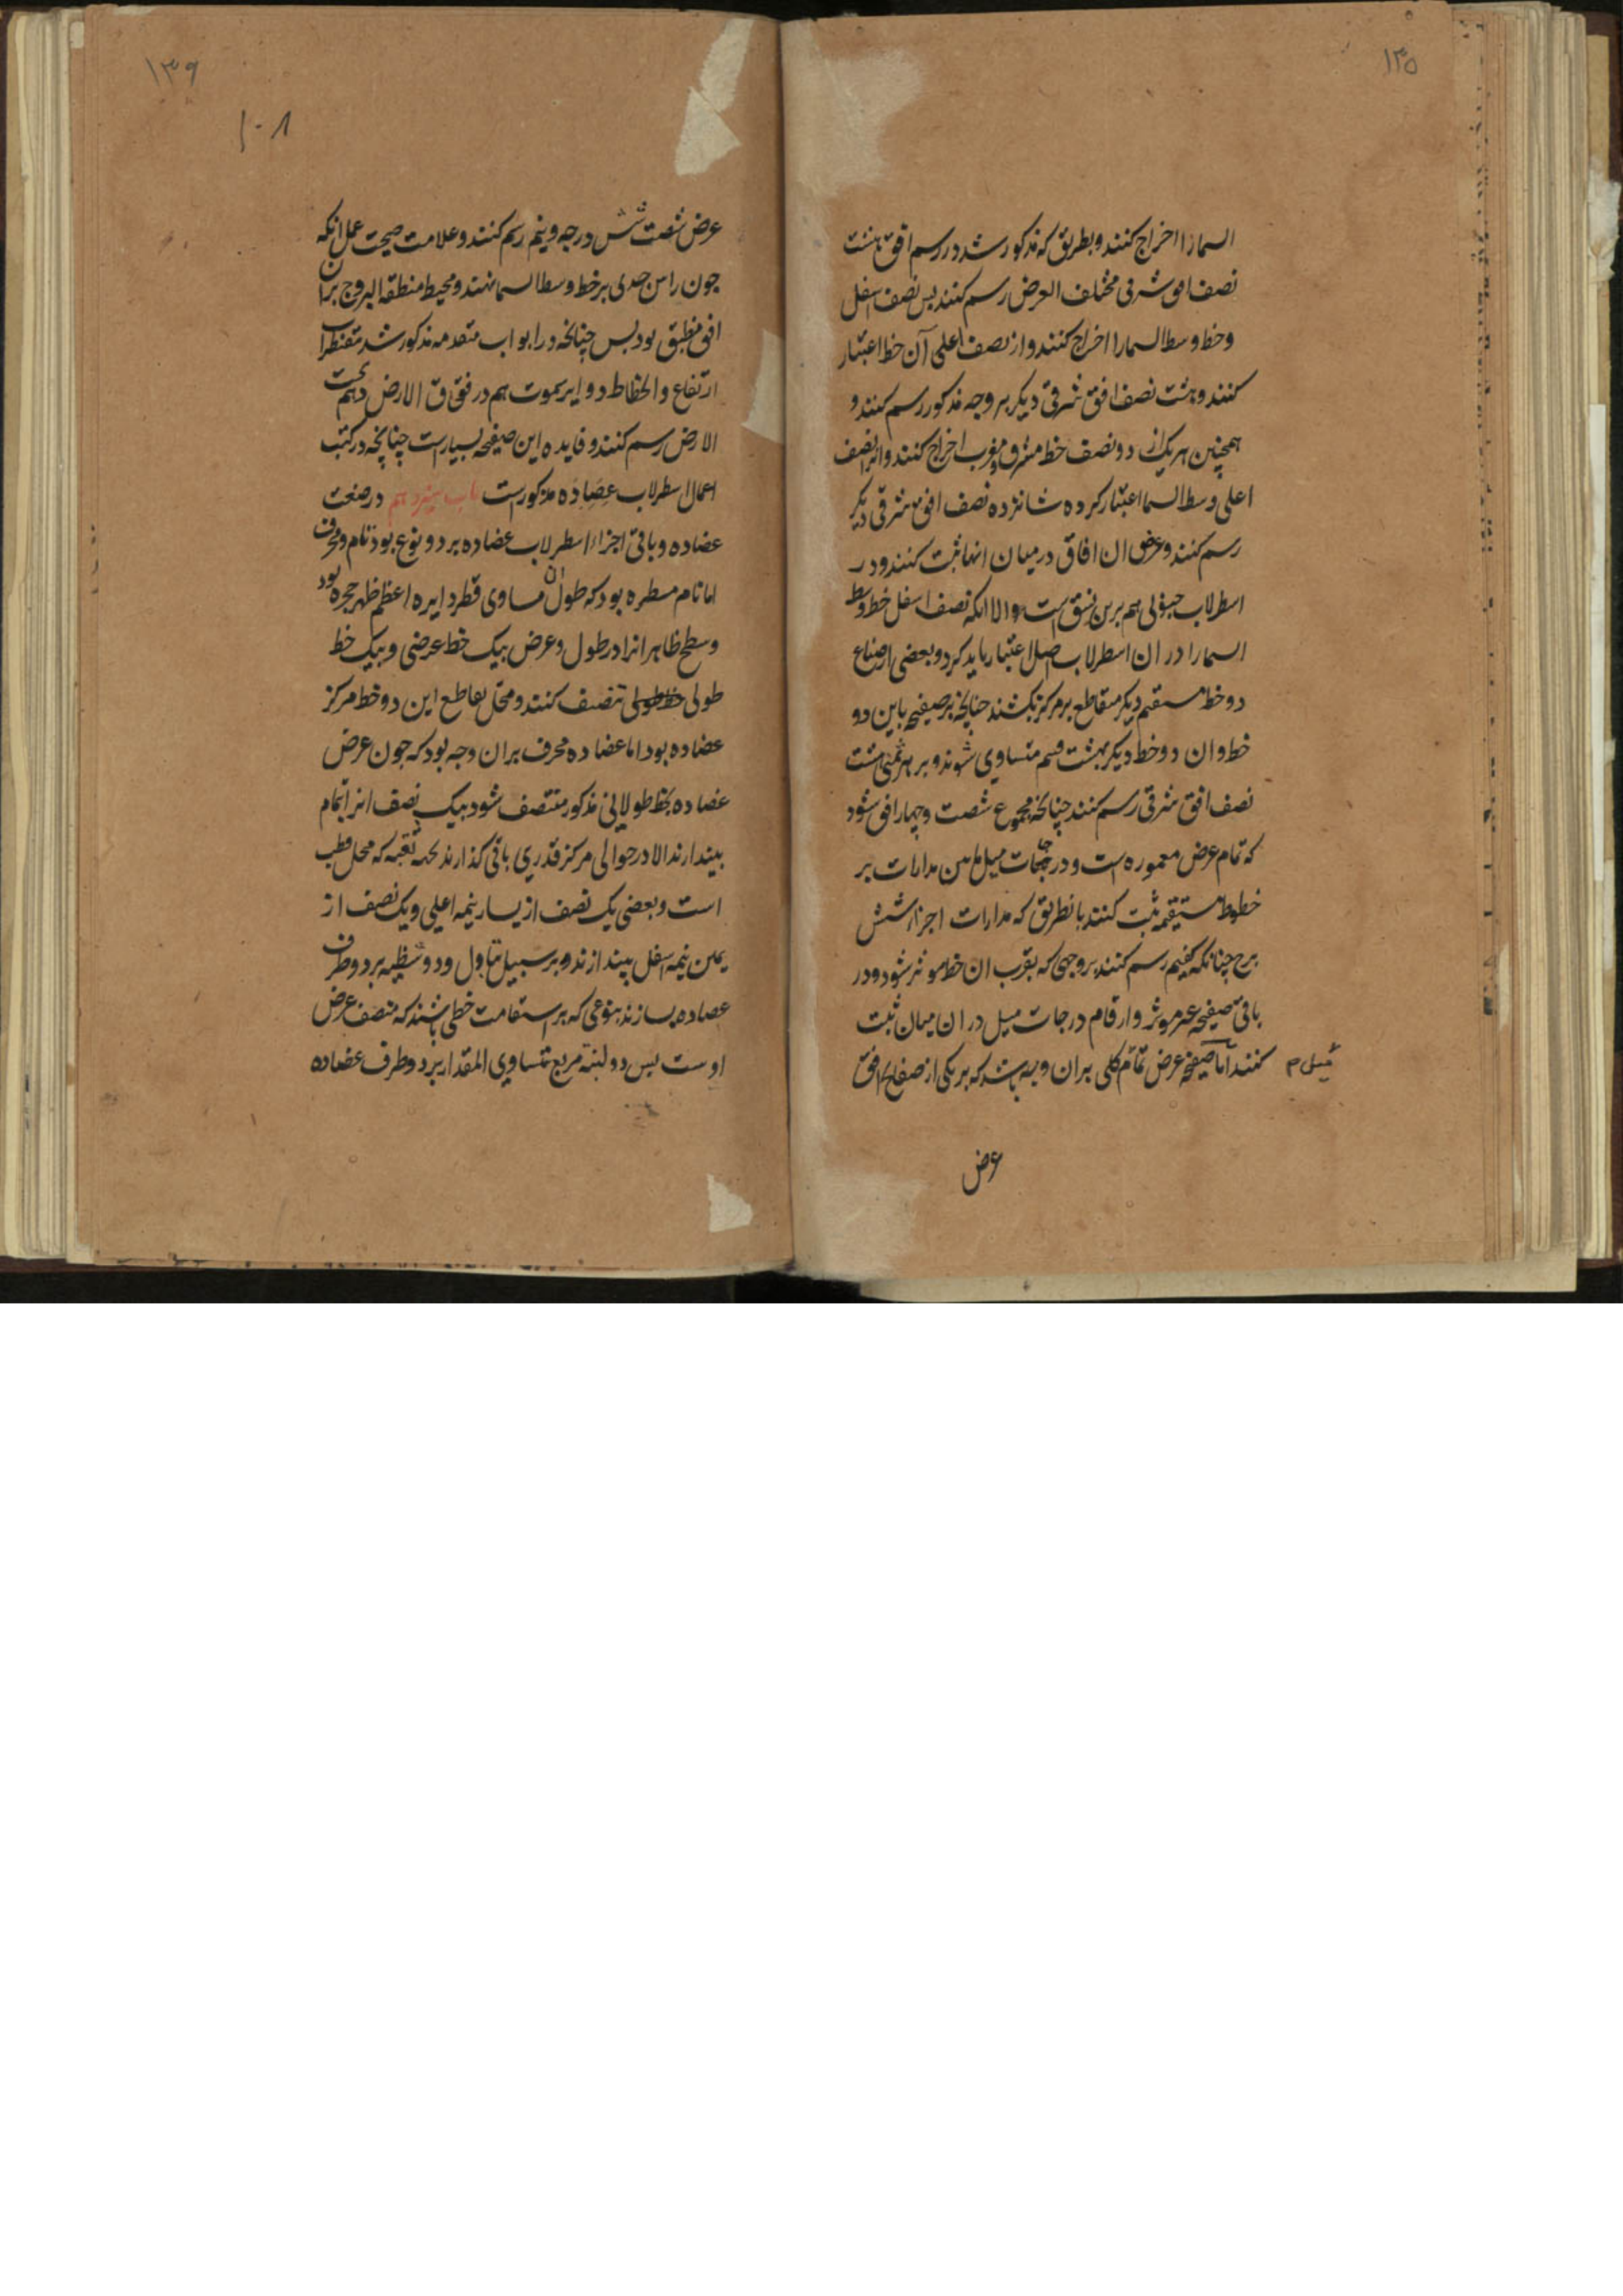 ۱۳۵
السمارا اخراج کنند و بطریق که مذکور شد در رسم افق هشت
نصف افق شرقی مختلف العرض رسم کنند پس نصف اسفل
و خط وسط السمارا اخراج کنند و از نصف اعلی آن خط اعتبار
کنند و هشت نصف افق شرقی دیکر بر وجه مذکور رسم کنند و
همچنین هر یک از دو نصف خط مشرق و مغرب اخراج کنند و از نصف
اعلی وسط السما اعتبار کرده شانزده نصف افق شرقی دیکر
رسم کنند و عرض ان افاق در میان انها ثبت کنند و در
اسطرلاب جنوبی هم برین نسق است والا انکه نصف اسفل خط وسط
السمارا در ان اسطرلاب اصل اعتبار باید کرد و بعضی از صناع
دو خط مستقیم دیکر متقاطع بر مرکز بکشند چنانچه صفیحه باین دو
خط و ان دو خط دیکر بهشت قسم متساوی شوند و بر هر ثمنی هشت
نصف افق شرقی رسم کنند چنانچه مجموع شصت و چهار افق شود
که تمام عرض معموره است و درجات میل مابین مدارات بر
خطوط مستقیمه ثبت کنند بانطریق که مدارات اجزا شش
برج چنانکه کفتیم رسم کنند بر وجهی که بقرب ان خط موثر شود و در
باقی صفیحه غیر موثر و ارقام درجات میل در ان میان ثبت
کنند اما صفیحه عرض تمام کلی بران وجه باشد که بر یکی از صفایح افق
میل م
عرض
۱۳۶
۱۰۸
عرض شصت شش درجه و نیم رسم کنند و علامت صحت عمل انکه
چون راس جدی بر خط وسط السما نهند و محیط منطقه البروج بران
افق منطبق بود پس چنانچه در ابواب متقدمه مذکور شد مقنطرات
ارتفاع و انحطاط و دوایر سموت هم در فوق الارض و هم تحت
الارض رسم کنند و فایده این صفیحه بسیارست چنانچه در کتب
اعمال اسطرلاب عضاده مذکورست باب سیزدهم در صنعت
عضاده و باقی اجزاء اسطرلاب عضاده بر دو نوع بود تام و محرف
اما تام مسطره بود که طول ان مساوی قطر دایره اعظم ظهر حجره بود
و سطح ظاهر انرا در طول و عرض بیک خط عرضی و بیک خط
طولی تنصیف کنند و محل تقاطع این دو خط مرکز
عضاده بود اما عضاده محرف بران وجه بود که چون عرض
عضاده بخط طولانی مذکور منتصف شود بیک نصف انرا تمام
بیندازند الا در حوالی مرکز قدری باقی کذارند ثقبه که محل قطب
است و بعضی یک نصف از یسار نیمه اعلی و یک نصف از
یمین نیمه اسفل بیندازند و بر سبیل تبادل و دو شظیه بر دو طرف
عضاده بسازند بنوعی که بر استقامت خطی باشند که منصف عرض
اوست پس دو لبنه مربع متساوی المقدار بر دو طرف عضاده